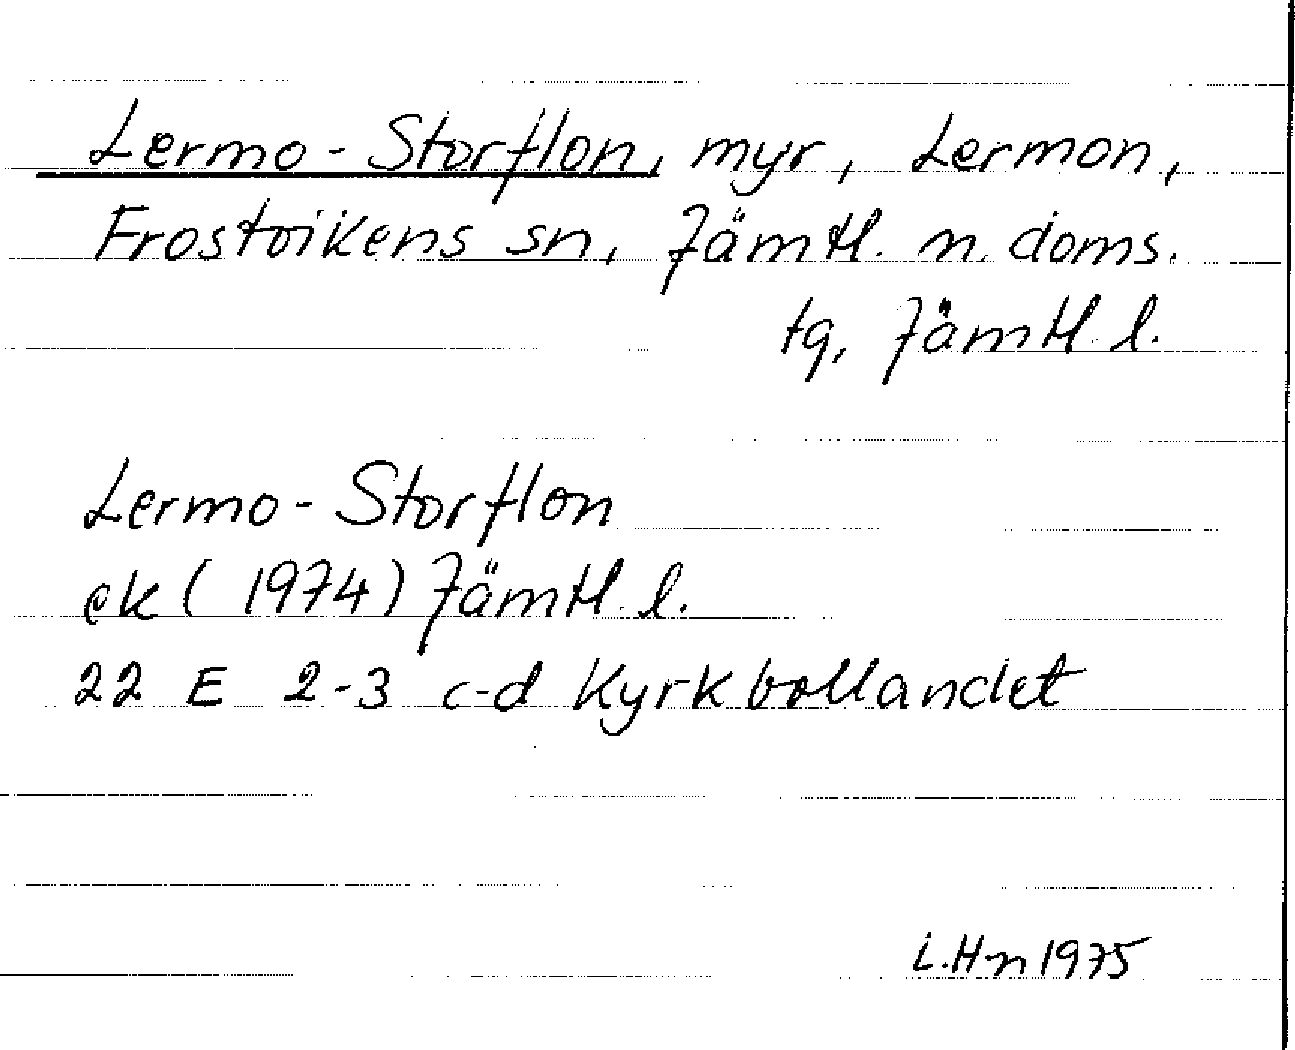 Lermo-Storflon, myr, Lermon,
Frostvikens sn, Jämtl. n. doms.
tg, Jämtl. l.
Lermo-Storflon
ek (1974) Jämtl. l.
22 E 2-3 c-d Kyrkbollandet
L.Hn 1975